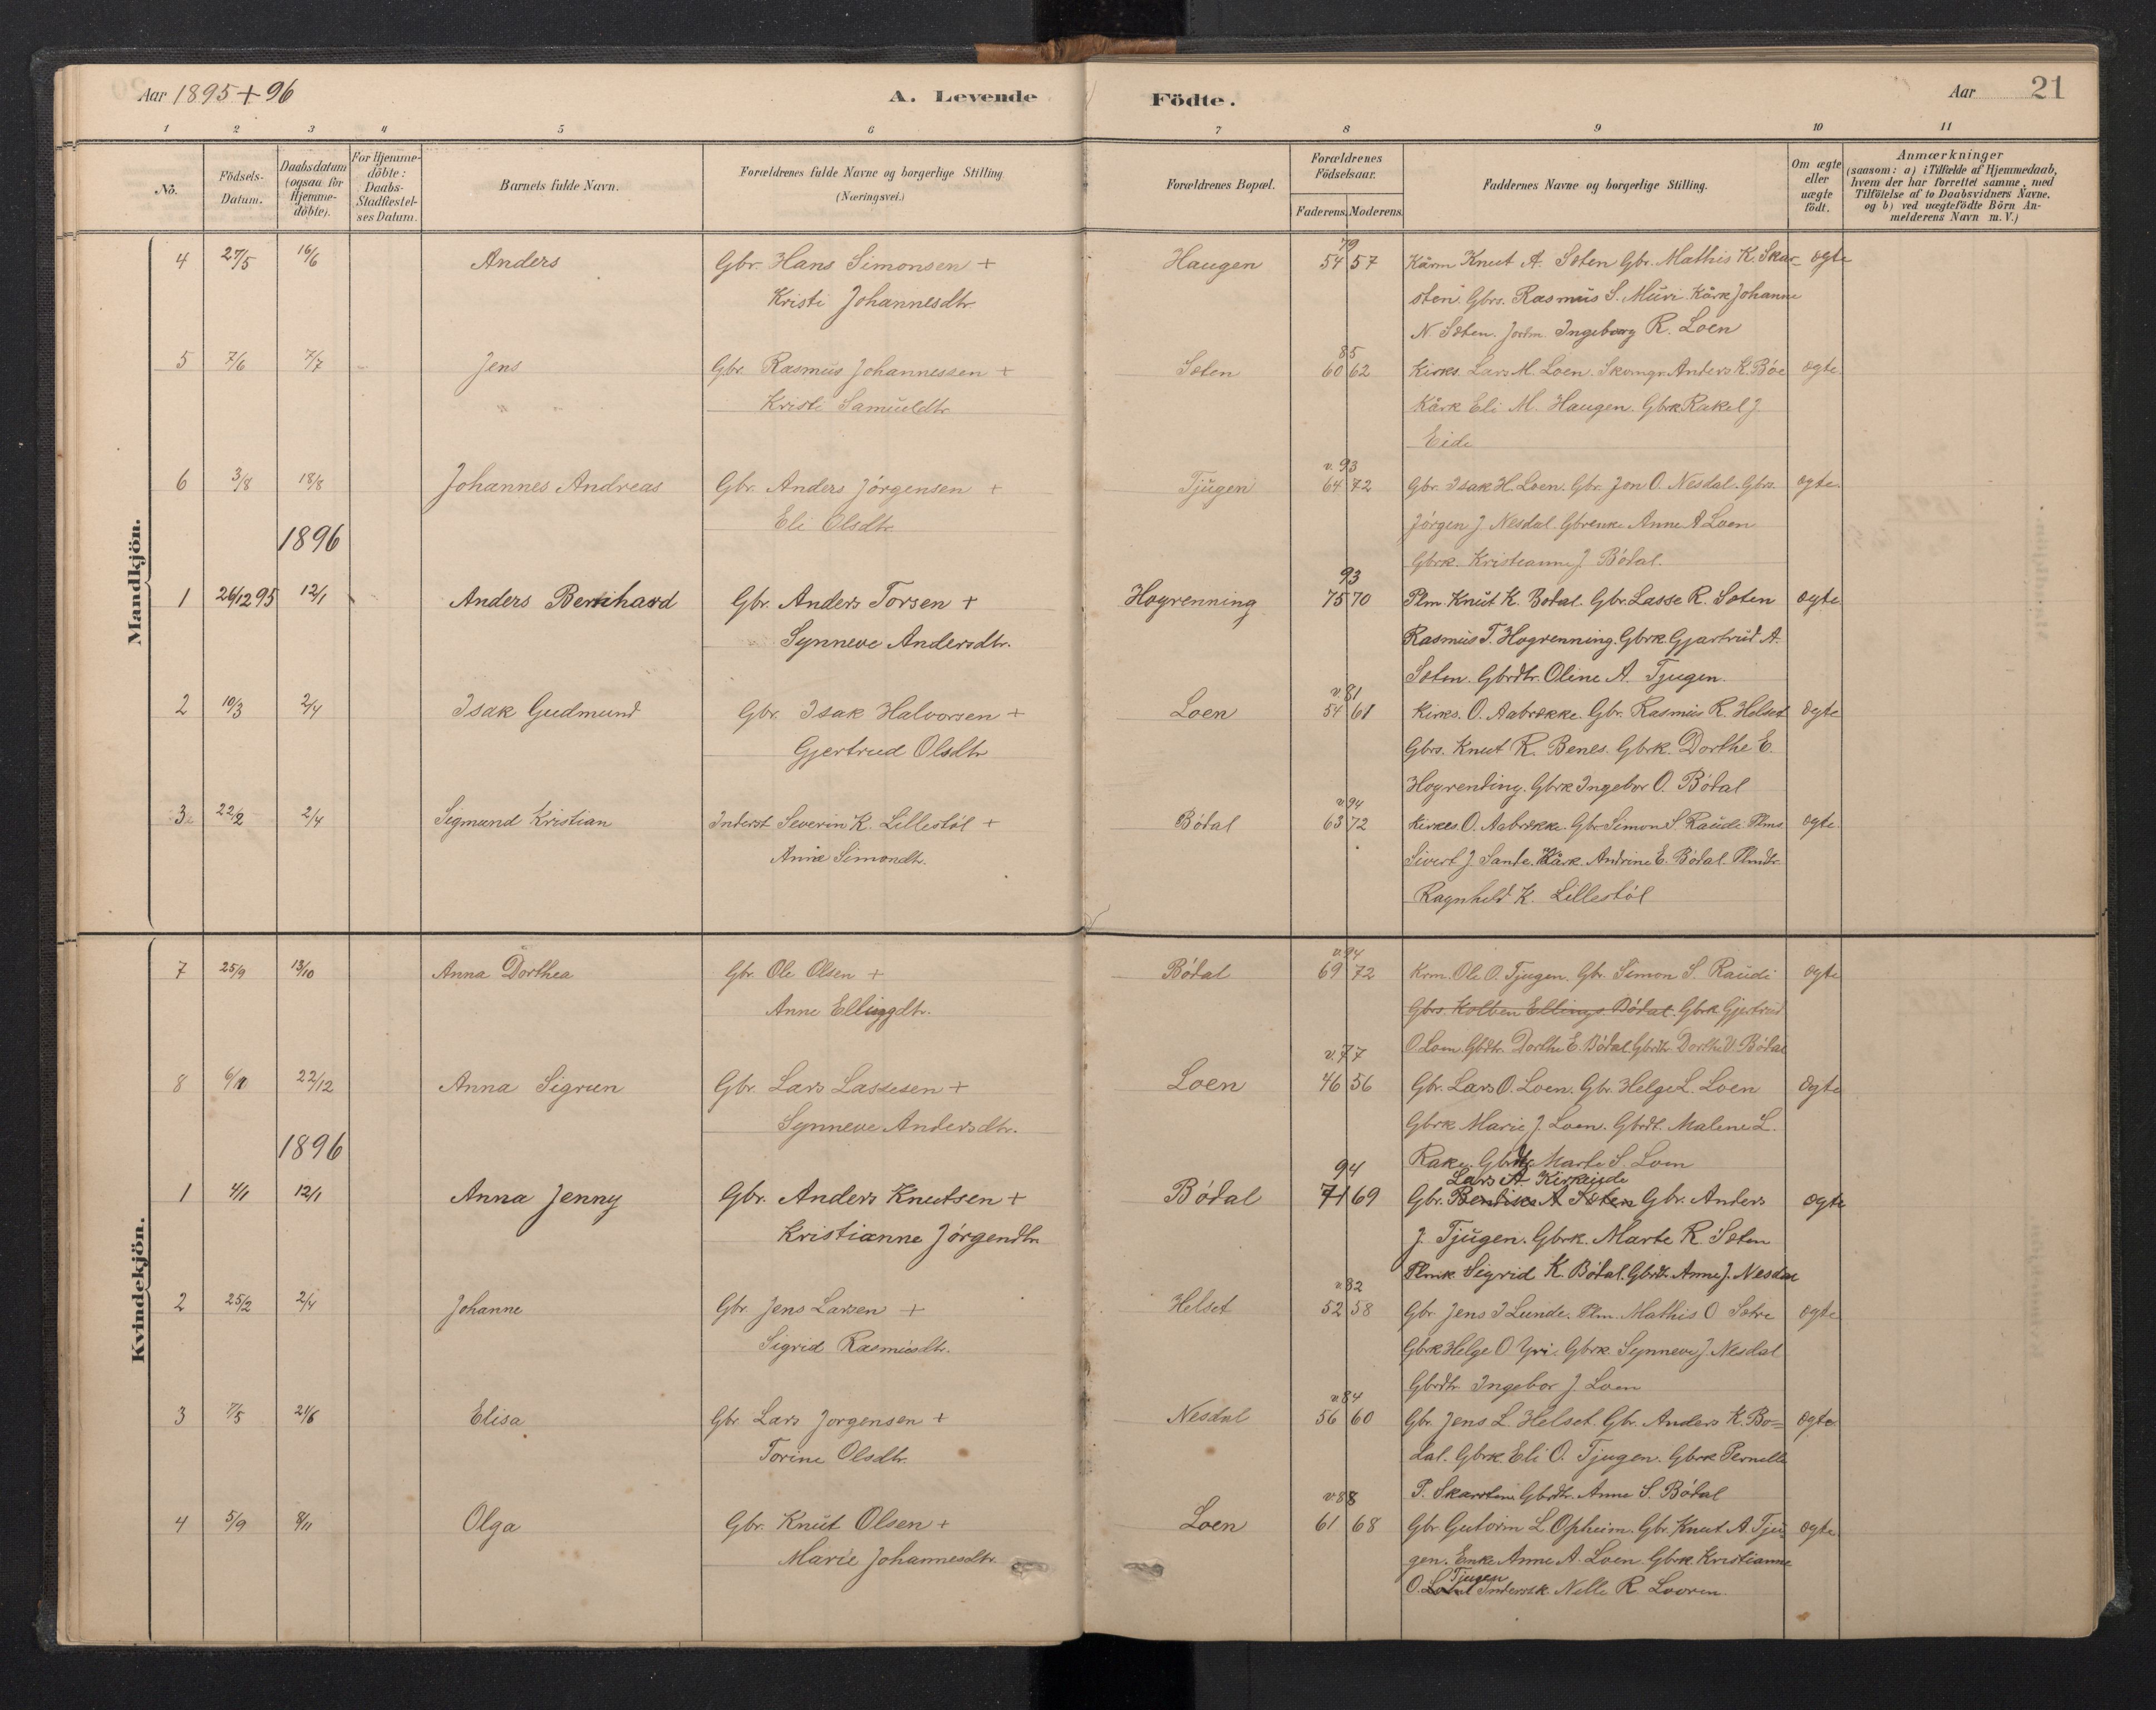 Aar 1895+96 A. Levende Födte. Aar 21
1 2 3 4 5 6 7 8 9 10 11
No. Födsels-Datum. Daabsdatum (ogsaa for Hjemme-döbte). For Hjemme-döbte: Daabs-Stadfæstel-ses Datum. Barnets fulde Navn. Forældrenes fulde Navne og borgerlige Stilling (Næringsvei.) Forældrenes Bopæl. Forældrenes Födselsaar. Faderens. Moderens. Faddernes Navne og borgerlige Stilling. Om ægte eller uægte födt. Anmærkninger (saasom: a) i Tilfælde af Hjemmedaab, hvem der har forrettet samme, med Tilföielse af to Daabsvidners Navne, og b) ved uægtefödte Börn An-melderens Navn m. V.)
Mandkjön.
79
4 27/5 16/6 Anders Gbr. Hans Simonsen + Haugen 54 57 Kårm Knut A. Sæten Gbr. Mathis K. Skar- ægte
Kristi Johannesdtr. sten. Gbrs. Rasmus S. Muri. Kårk Johanne
N Sæten. Jordm. Ingeborg R. Loen
85
5 7/6 7/7 Jens Gbr Rasmus Johannessen + Sæten 60 62 Kirks. Lars M. Loen. Skomgr. Anders K. Böe ægte.
Kristi Samueldtr Kårk Eli M. Haugen. Gbrk Rakel J
Eide
v. 93
6 3/8 18/8 Johannes Andreas Gbr. Anders Jörgensen + Tjugen 64 72 Gbr. Isak H. Loen. Gbr. Jon O. Nesdal. Gbrs. ægte.
Eli Olsdtr Jörgen J. Nesdal. Gbrenke Anne A Loen
1896
Gbrk. Kristianne J. Bödal.
93
1 26/12 95 12/1 Anders Bernhard Gbr. Anders Torsen + Hogrenning 75 70 Plm. Knut K. Bödal. Gbr. Lasse R. Sæten ægte.
Synneve Andersdtr. Rasmus T. Hogrenning. Gbrk Gjartrud A.
Sæten. Gbrdtr. Oline A. Tjugen.
v. 81
2 10/3 2/4 Isak Gudmund Gbr. Isak Halvorsen + Loen 54 61 Kirks. O. Aabrekke. Gbr. Rasmus R. Helset ægte
Gjertrud Olsdtr Gbrs. Knut R. Benes. Gbrk. Dorthe E.
Hogrending. Gbrk Ingebor O. Bödal
v. 94
3 22/2 2/4 Sigmund Kristian Inderst Severin K. Lillestöl + Bödal 63 72 Kirkes. O. Aabrekke. Gbr Simon S. Raudi Plms ægte.
Anne Simondtr. Sivert J. Sande. Kårk. Andrine E. Bödal. Plmdtr
Ragnhild K. Lillestöl
Kvindekjön.
v. 94
7 25/9 13/10 Anna Dorthea Gbr. Ole Olsen + Bödal 69 72 Krm. Ole O. Tjugen. Gbr. Simon S. Raudi ægte
Anne Ellingdtr. Gbrs. Kolben Ellings. Bödal. Gbrk Gjertrud
O Loen. Gbdtr. Dorthe E. Bödal. Gbrdtr Dorthe O. Bödal
v. 77
8 6/11 22/12 Anna Sigrun Gbr. Lars Lassesen + Loen 46 56 Gbr. Lars O. Loen. Gbr. Helge L. Loen ægte
Synneve Andersdtr. Gbrk Marie J. Loen. Gbrdt. Malene L.
1896
Rake. Marte S. Loen
94 Lars A Kirkeide
1 4/1 12/1 Anna Jenny Gbr. Anders Knutsen + Bödal 71 69 Gbr. Bendik A Sæten Gbr. Anders ægte
Kristianne Jörgendtr J. Tjugen. Gbrk. Marte R. Sæten
Plmk. Sigrid K. Bödal. Gbrdtr. Anne J. Nesdal
v 82
2 25/2 2/4 Johanne Gbr Jens Larsen + Helset 52 58 Gbr. Jens I Lunde. Plm. Mathis O Sætre ægte
Sigrid Rasmusdtr. Gbrk Helge O Yri. Gbrk. Synneve J. Nesdal
Gbrdtr Ingebor J Loen
v. 84
3 7/5 21/6 Elisa Gbr Lars Jorgensen + Nesdal 56 60 Gbr. Jens L. Helset. Gbr. Anders K. Bö- ægte
Torine Olsdtr. dal. Gbrk. Eli O. Tjugen. Gbrk Pernille
P. Skarsten Gbrdtr. Anne S. Bödal
v. 88
4 5/9 8/11 Olga Gbr. Knut Olsen + Loen 61 68 Gbr. Gutorm L. Opheim. Gbr. Knut A. Tju- ægte
Marie Johannesdtr gen. Enke Anne A. Loen. Gbrk. Kristianne
Tjugen
O. Inderstk. Nelle R. Looren.